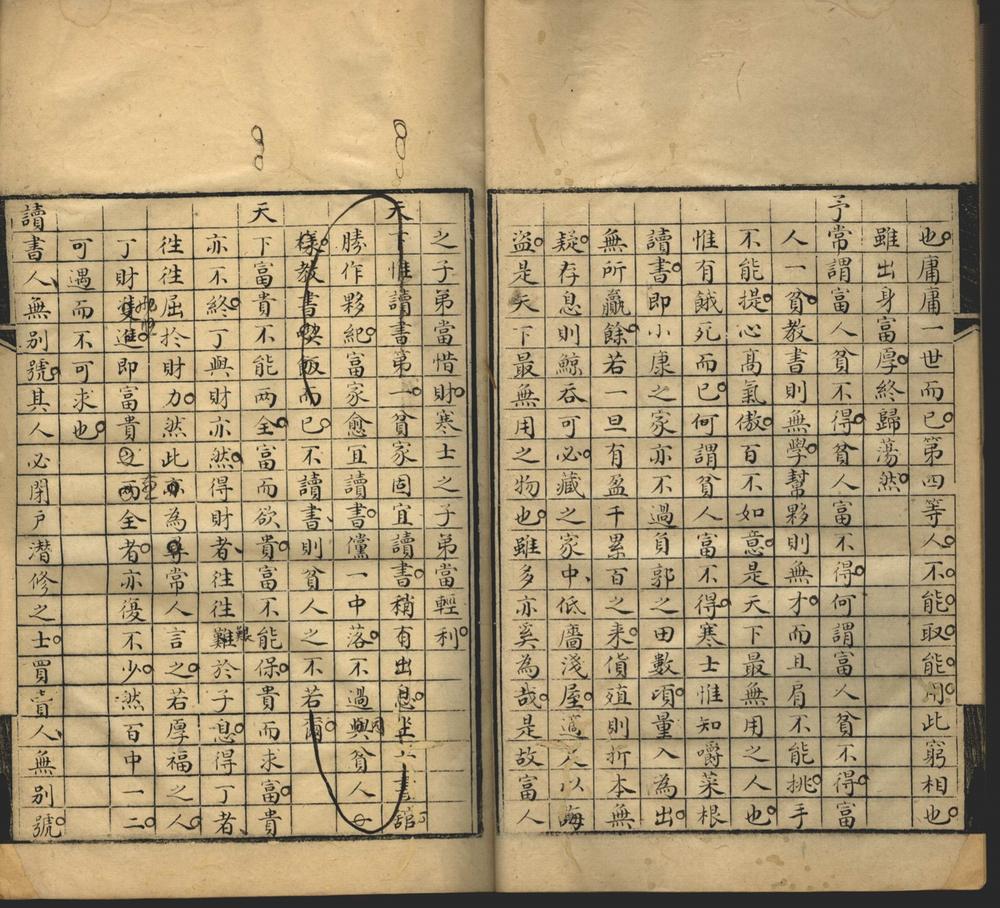 也。庸庸一世而已。第四等人。不能取。能用此窮相也。
雖出身富厚。終歸蕩然。
予常謂富人貧不得。貧人富不得。何謂富人貧不得。富
人一貧。教書則無學。幫夥則無才。而且肩不能挑。手
不能提。心高氣傲。百不如意。是天下最無用之人也。
惟有餓死而已。何謂貧人富不得。寒士惟知嚼菜根
讀書。即小康之家亦不過負郭之田數頃。量入為出。
無所贏餘。若一旦有盈千累百之来。貨殖則折本無
疑。存息則鯨吞可必。藏之家中、低牆淺屋。適足以誨
盜。是天下最無用之物也。雖多亦奚為哉。是故富人
之子弟當惜財。寒士之子弟當輕利。
天下惟讀書第一。貧家固宜讀書。稍有出息。坐子書館。
勝作夥紀。富家愈宜讀書。儻一中落。不過與貧人一
樣。教書喫飯而已。不讀書、則貧人之不若爾。
天下富貴不能两全。富而欲貴。富不能保。貴而求富。貴
亦不終。丁與財亦然。得財者、往往難艱於子息。得丁者、
往往屈於財力。然此為尋常人言之。若厚福之人。
丁財進。即富貴两全者。亦復不少。然百中一二。
可遇而不可求也。
讀書人、無別號。其人必閉戶潛修之士。買賣人、無別號。